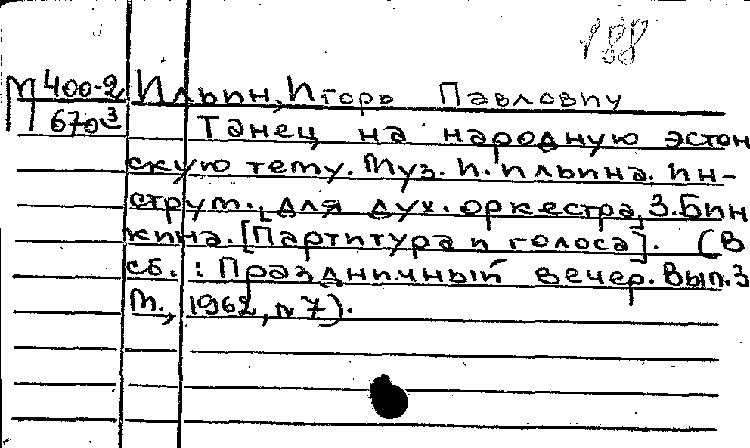 188
М 400-2 Ильин, Игорь Павлович
670³ Танец на народную эстон
скую тему. Муз. И. Ильина. Ин-
струм. [для дух. оркестра] З. Бин
кина. [Партитура и голоса]. (В
сб.: Праздничный вечер. Вып. 3
М., 1962, № 7).